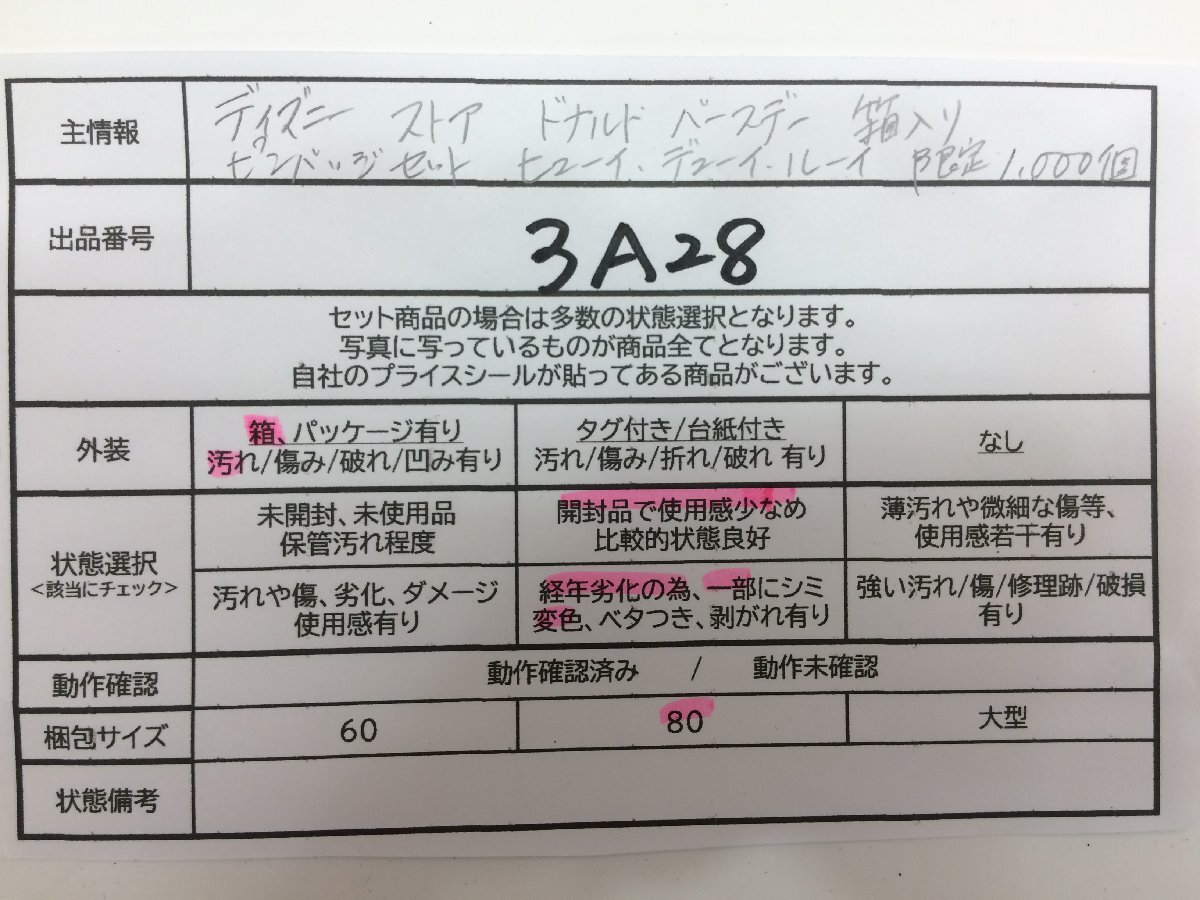 主情報
ディズニー ストア ドナルド バースデー 箱入り
ピンバッジセット ヒューイ、デューイ、ルーイ 限定1,000個
出品番号
3A28
セット商品の場合は多数の状態選択となります。
写真に写っているものが商品全てとなります。
自社のプライスシールが貼ってある商品がございます。
外装
箱、パッケージ有り
汚れ/傷み/破れ/凹み有り
タグ付き/台紙付き
汚れ/傷み/折れ/破れ 有り
なし
状態選択
<該当にチェック>
未開封、未使用品
保管汚れ程度
開封品で使用感少なめ
比較的状態良好
薄汚れや微細な傷等、
使用感若干有り
汚れや傷、劣化、ダメージ
使用感有り
経年劣化の為、一部にシミ
変色、ベタつき、剥がれ有り
強い汚れ/傷/修理跡/破損
有り
動作確認
動作確認済み / 動作未確認
梱包サイズ
60
80
大型
状態備考